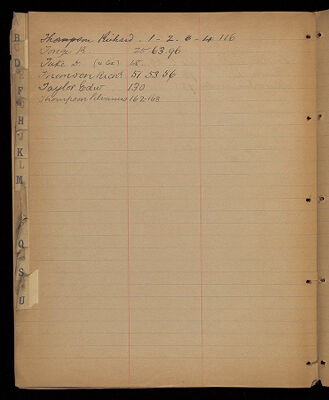 Thompson Richard . 1 - 2 . 3 - 4 . 166
Tonge B. 25 63.96
Tuke D. (& Co) 18.
51.53.56
Taylor Edw. 130
Thompson 162-163
B
D
F
H
J
K
L
M
O
Q
S
U